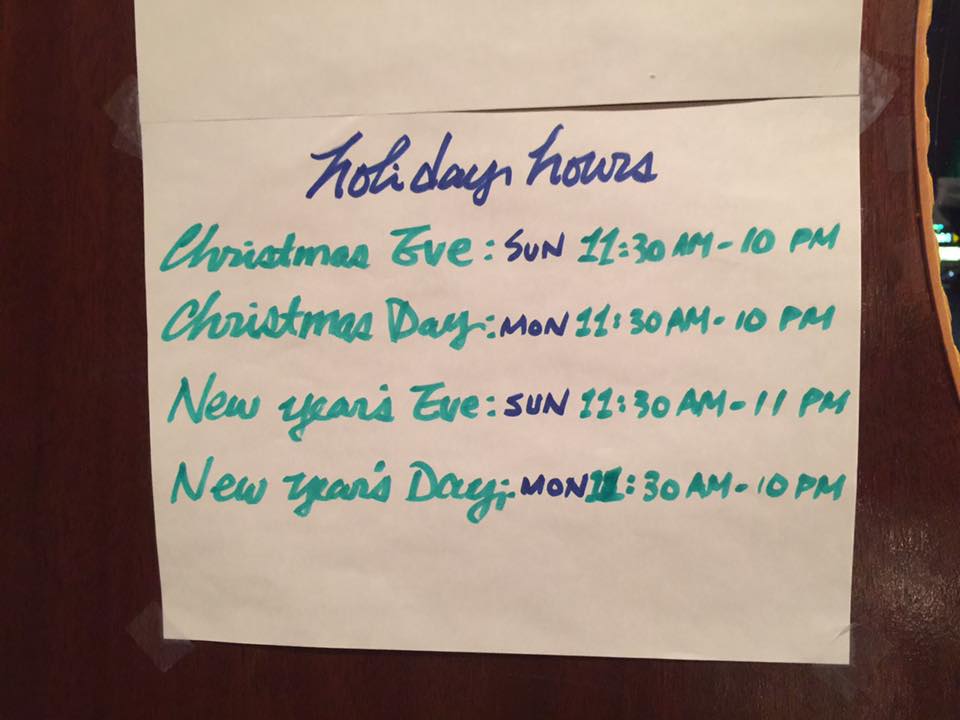 holiday hours
Christmas Eve: SUN 11:30 AM - 10 PM
Christmas Day: MON 11:30 AM - 10 PM
New year's Eve: SUN 11:30 AM - 11 PM
New year's Day: MON 11:30 AM - 10 PM